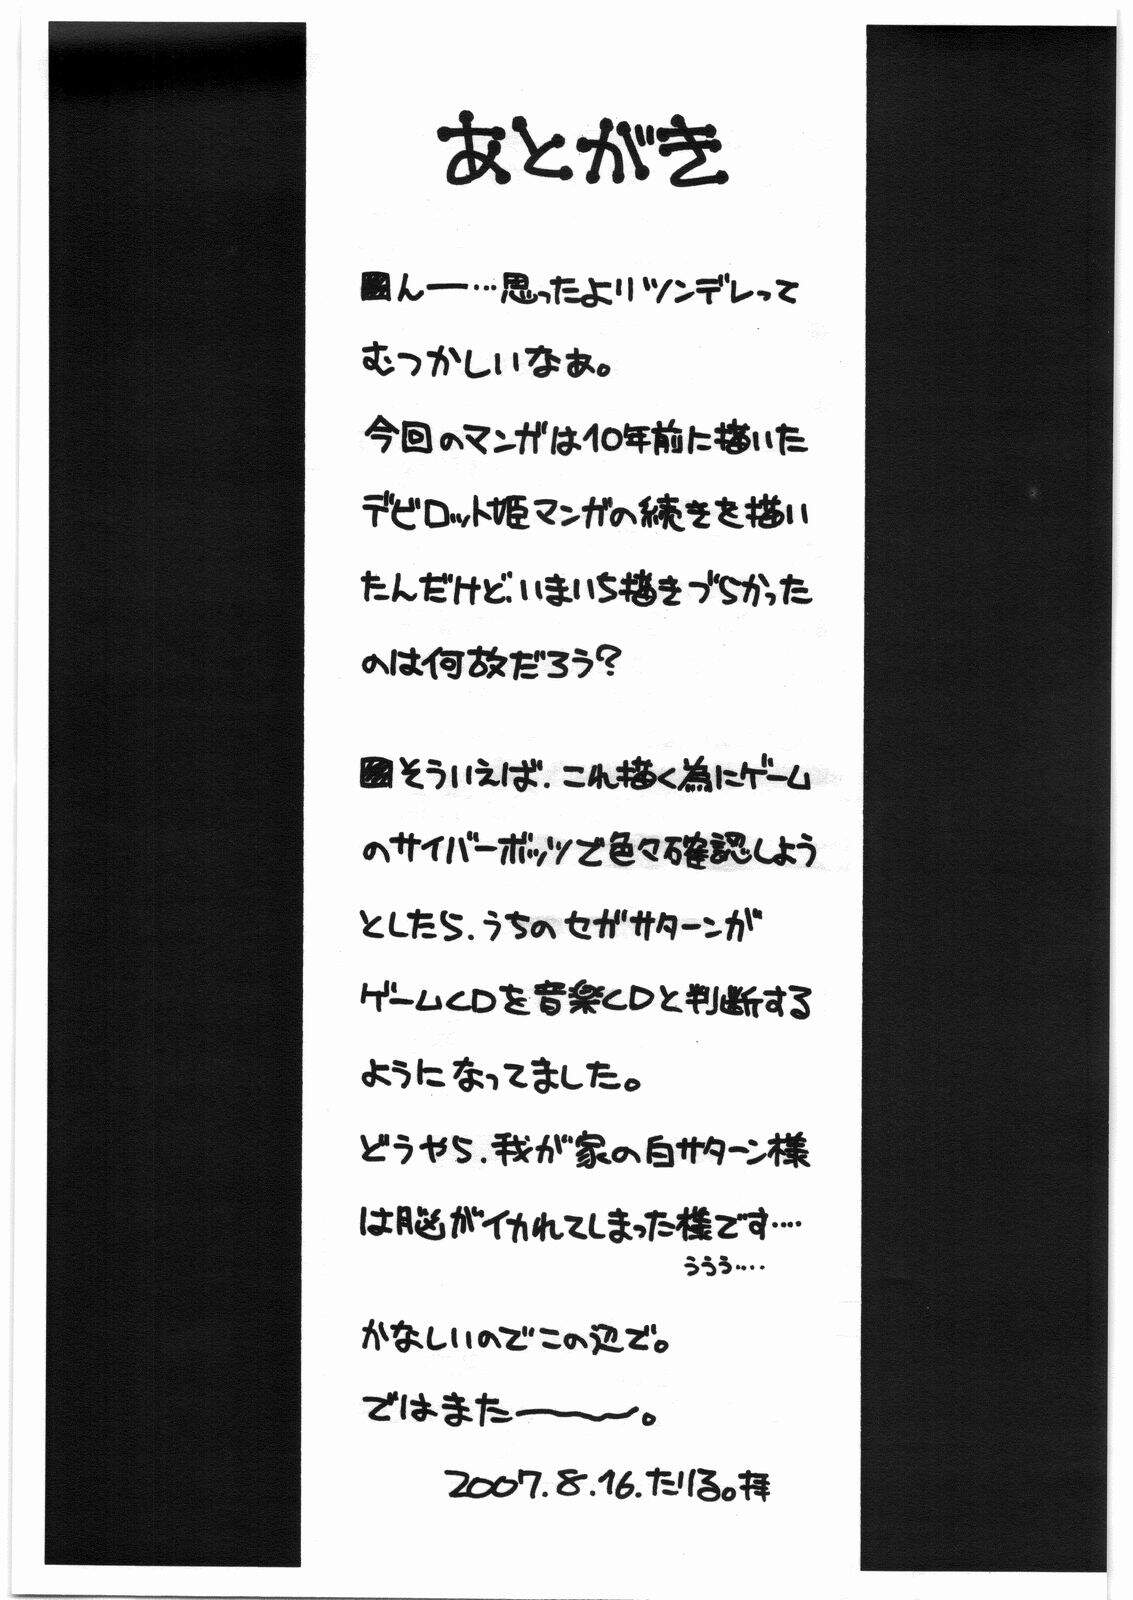 あとがき
んー…思ったよりツンデレって
むつかしいなぁ。
今回のマンガは10年前に描いた
デビロット姫マンガの続きを描い
たんだけど、いまいち描きづらかった
のは何故だろう?
そういえば、これ描く為にゲーム
のサイバーボッツで色々確認しよう
としたら、うちのセガサターンが
ゲームCDを音楽CDと判断する
ようになってました。
どうやら、我が家の白サターン様
は脳がイカれてしまった様です‥‥
ううう‥‥
かなしいのでこの辺で。
ではまたー〜。
2007.8.16.たりる。拝